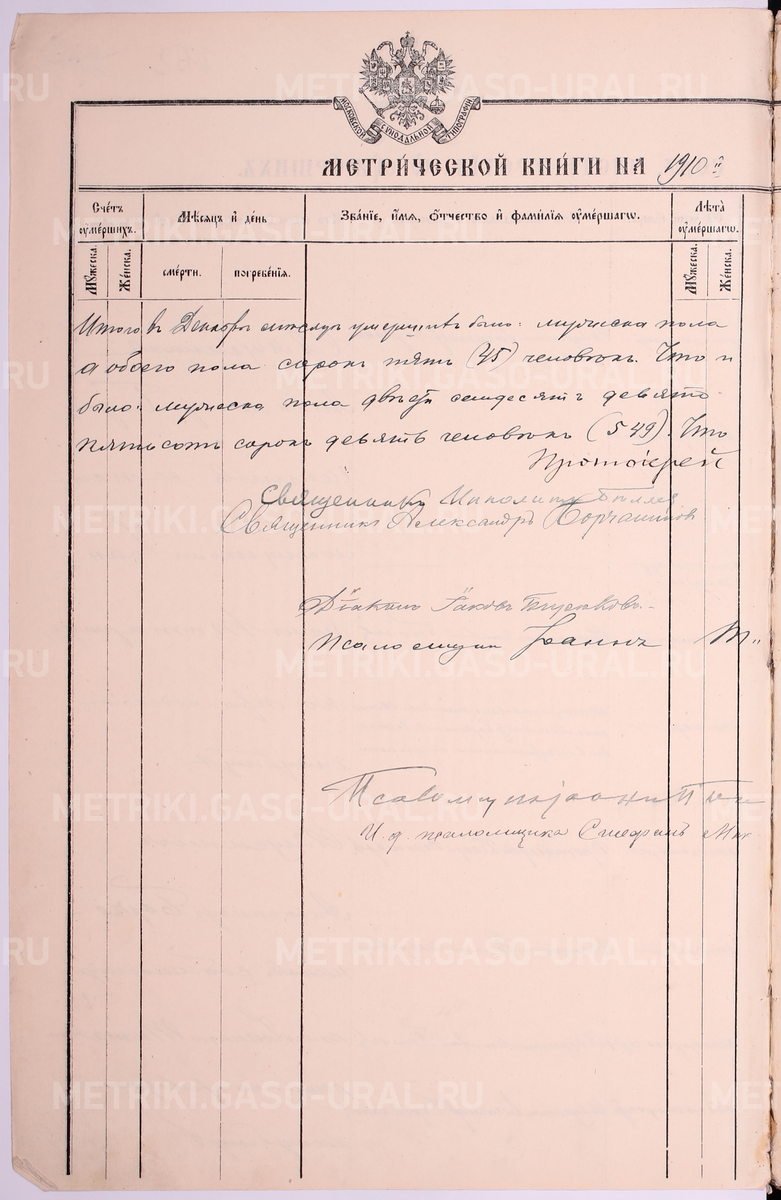 МОСКОВСКОЙ СѴНОДАЛЬНОЙ ТИПОГРАФІИ
МЕТРИ́ЧЕСКОЙ КНИ́ГИ НА 1910 й
Сче́тъ ᲂу҆ме́ршихъ.
Мѣ́сяцъ и҆ де́нь
Зва́нїе, и҆́мя, ѻ҆́тчество и҆ фами́лїя ᲂу҆ме́ршагѡ.
Лѣ́та ᲂу҆ме́ршагѡ.
Мꙋ́жеска.
Же́нска.
сме́рти.
погребе́нїя.
Мꙋ́жеска.
Же́нска.
Итого в Декабрѣ мѣсяцѣ умершихъ было: мужеска пола
а обоего пола сорокъ пять (45) человѣкъ. Что и
было: мужеска пола двѣсти семдесятъ девять
пятьсотъ сорокъ девять человѣкъ (549). Что
Протоіерей
Священникъ Ипполитъ
Священникъ Александръ
Діаконъ Іаковъ
Псаломщик Іоаннъ
И. д. псаломщика Стефанъ
METRIKI.GASO-URAL.RU